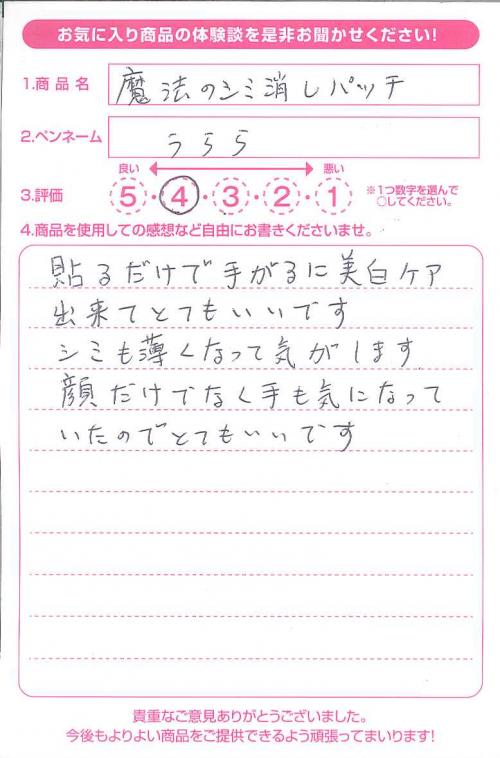 お気に入り商品の体験談を是非お聞かせください!
1.商品名 魔法のシミ消しパッチ
2.ペンネーム うらら
良い 悪い
3.評価 5・4・3・2・1 ※1つ数字を選んで
○してください。
4.商品を使用しての感想など自由にお書きくださいませ。
貼るだけで手がるに美白ケア
出来てとてもいいです
シミも薄くなって気がします
顔だけでなく手も気になって
いたのでとてもいいです
貴重なご意見ありがとうございました。
今後もよりよい商品をご提供できるよう頑張ってまいります!